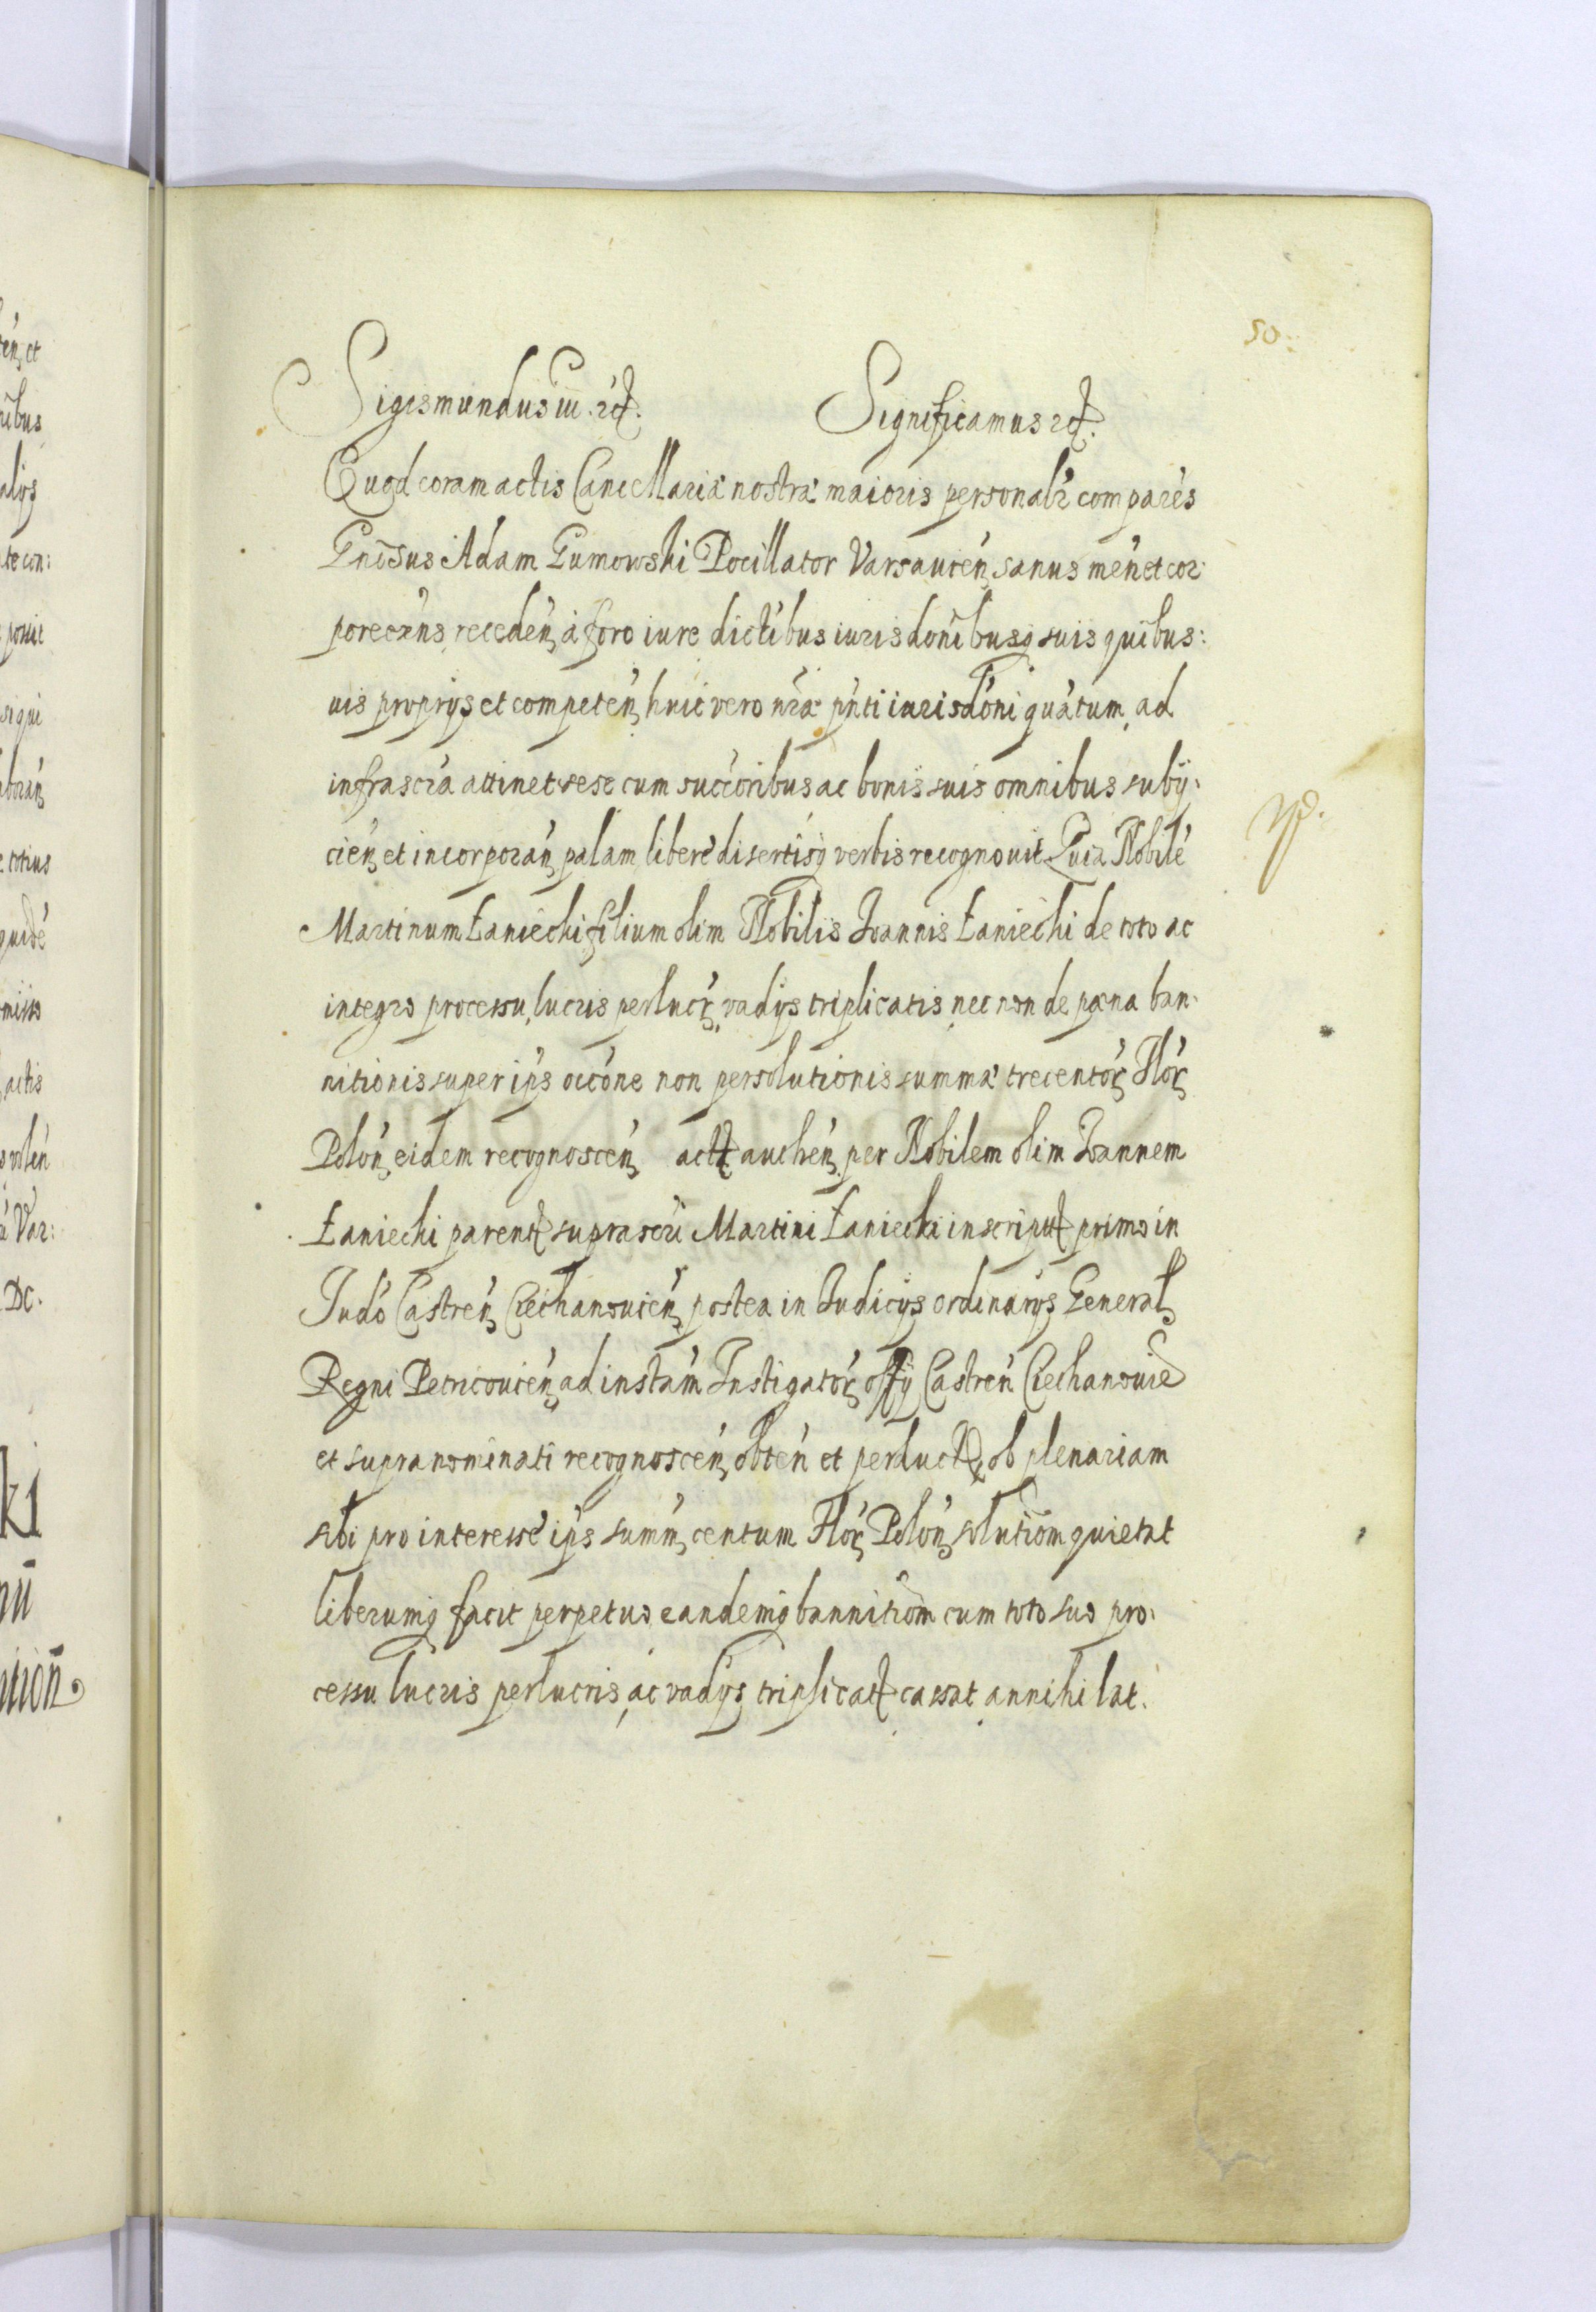 50.
Sigismundus iii. etc. Significamus etc.
Quod coram actis Cancellariæ nostræ maioris personalr compares
Gnõsus Adam Gumowski Pocillator Varsauień, sanus meń et cor:
pore exńs, recedeń, à foro iure dictibus iurisdonibusq, suis quibus:
uis proprijs et competeń, huic vero nræ pńti iurisdóni quátum, ad
infrascrá attinet sese cum succóribus ac bonis suis omnibus subij:
cień, et incorporań, palam liberè disertisq, verbis recognouit Quia Nobilé
Martinum Łaniecki filium olim Nobilis Ioannis Łaniecki de toto ac
integro processu, lucris perlucr, vadijs triplicatis, nec non de pæna ban:
nitionis super ips occóne non persolutionis summæ trecentor, Flor,
Poloń, eidem recognosceń, actt aucheń, per Nobilem olim Ioannem
Łaniecki parent suprascri Martini Łaniecki inscriptt primo in
Iudó Castreń, Ciechanouień, postea in Iudicijs ordinarijs General,
Regni Petricouień, ad instám Instigator, offij Castreń Ciechanouie
et supranominati recognosceń, obteń et perluctt, ob plenariam
sibi pro interesse ips summ, centum Flor, Poloń, solutióm quietat
liberumq, facit perpetuo eandemq, bannitióm cum toto suo pro:
cessu lucris perlucris, ac vadijs triplicatt cassat annihilat.